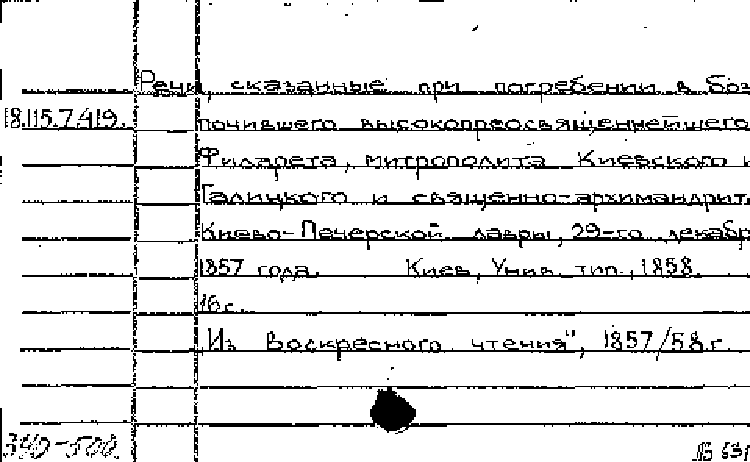 Речи, сказанные при погребении в бозе
18.115.7.419. почившего высокопреосвященнейшего
Филарета, митрополита Киевского и
Галицкого и священно-архимандрит
Киево-Печерской лавры, 29-го декабр
1857 года. Киев, Унив. тип., 1858.
16 с.
"Из Воскресного чтения", 1857/58 г.
340-500